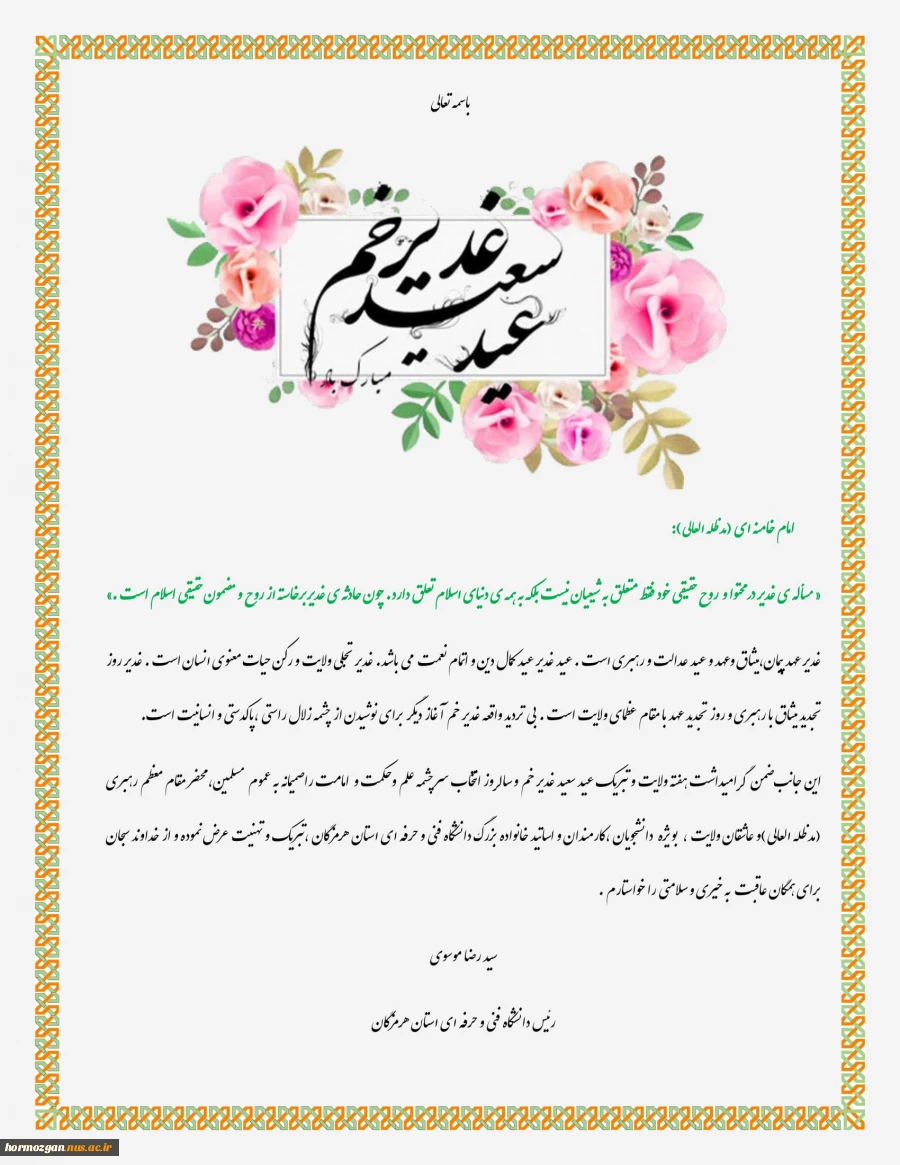 باسمه تعالی
عید سعید غدیر خم
مبارک باد
امام خامنه ای (مدظله العالی):
« مسأله ی غدیر در محتوا و روح حقیقی خود فقط متعلق به شیعیان نیست بلکه به همه ی دنیای اسلام تعلق دارد. چون حادثه ی غدیر برخاسته از روح و مضمون حقیقی اسلام است .»
غدیر عهد پیمان،میثاق وعهد و عید عدالت و رهبری است . عید غدیر عید کمال دین و اتمام نعمت می باشد. غدیر تجلی ولایت و رکن حیات معنوی انسان است . غدیر روز
تجدید میثاق با رهبری و روز تجدید عهد با مقام عظمای ولایت است . بی تردید واقعه غدیر خم آغاز دیگر برای نوشیدن از چشمه زلال راستی ،پاکدستی و انسانیت است.
این جانب ضمن گرامیداشت هفته ولایت و تبریک عید سعید غدیر خم و سالروز انتخاب سرچشمه علم وحکمت و امامت را صمیمانه به عموم مسلمین، محضر مقام معظم رهبری
(مدظله العالی )و عاشقان ولایت ، بویژه دانشجویان ،کارمندان و اساتید خانواده بزرگ دانشگاه فنی و حرفه ای استان هرمزگان ،تبریک و تهنیت عرض نموده و از خداوند سبحان
برای همگان عاقبت به خیری و سلامتی را خواستارم .
سید رضا موسوی
رئیس دانشگاه فنی و حرفه ای استان هرمزگان
hormozgan.nus.ac.ir